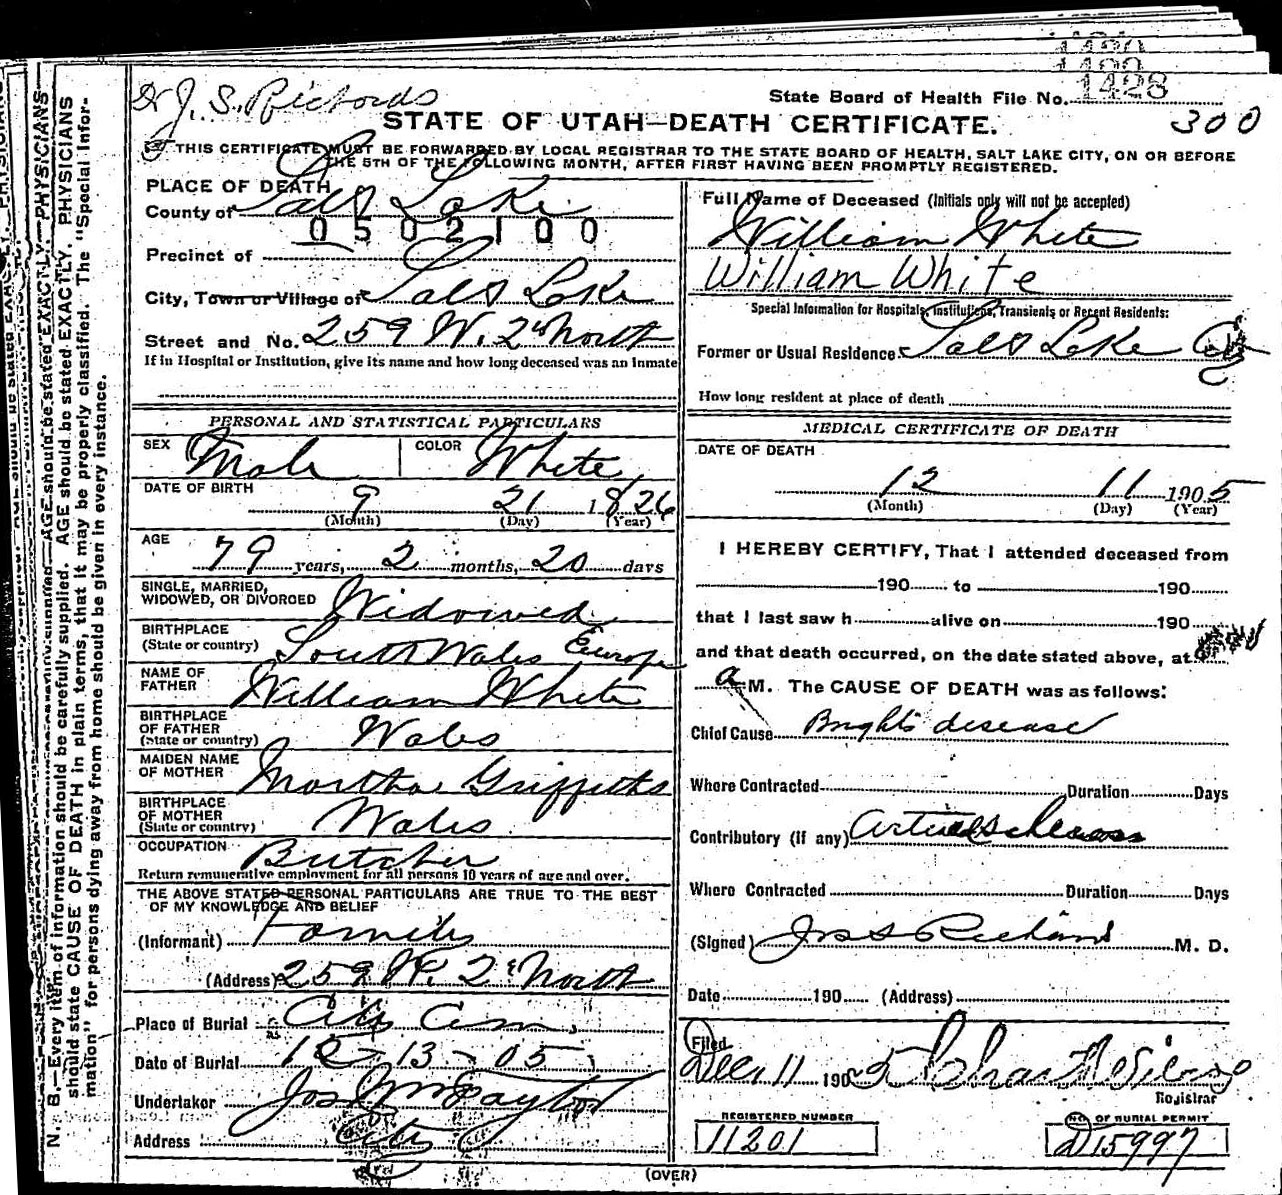 1420
1422
1428
Dr J. S. Richards
State Board of Health File No.
300
STATE OF UTAH—DEATH CERTIFICATE.
THIS CERTIFICATE MUST BE FORWARDED BY LOCAL REGISTRAR TO THE STATE BOARD OF HEALTH, SALT LAKE CITY, ON OR BEFORE
THE 5TH OF THE FOLLOWING MONTH, AFTER FIRST HAVING BEEN PROMPTLY REGISTERED.
PLACE OF DEATH
County of Salt Lake
0502100
Precinct of
City, Town or Village of Salt Lake
Street and No. 259 W. 2nd North
If in Hospital or Institution, give its name and how long deceased was an Inmate
PERSONAL AND STATISTICAL PARTICULARS
SEX Male COLOR White
DATE OF BIRTH 9 21 1826
(Month) (Day) (Year)
AGE 79 years, 2 months, 20 days
SINGLE, MARRIED,
WIDOWED, OR DIVORCED Widowed
BIRTHPLACE
(State or country) South Wales Europe
NAME OF
FATHER William White
BIRTHPLACE
OF FATHER
(State or country) Wales
MAIDEN NAME
OF MOTHER Martha Griffeths
BIRTHPLACE
OF MOTHER
(State or country) Wales
OCCUPATION Butcher
Return remunerative employment for all persons 10 years of age and over.
THE ABOVE STATED PERSONAL PARTICULARS ARE TRUE TO THE BEST
OF MY KNOWLEDGE AND BELIEF
(Informant) Family
(Address) 259 W. 2d North
Place of Burial City Cem.
Date of Burial 12-13-05
Undertaker Jos Wm Taylor
Address City
Full Name of Deceased (Initials only will not be accepted)
William White
William White
Special Information for Hospitals, Institutions, Transients or Recent Residents:
Former or Usual Residence Salt Lake City
How long resident at place of death
MEDICAL CERTIFICATE OF DEATH
DATE OF DEATH
12 11 1905
(Month) (Day) (Year)
I HEREBY CERTIFY, That I attended deceased from
190 to 190
that I last saw h alive on 190
and that death occurred, on the date stated above, at
a M. The CAUSE OF DEATH was as follows:
Chief Cause Brights disease
Where Contracted Duration Days
Contributory (if any)
Where Contracted Duration Days
(Signed) Jos S Richards M. D.
Date 190 (Address)
Filed
Dec. 11 1905
Registrar
REGISTERED NUMBER
11201
NO. OF BURIAL PERMIT
D15997
(OVER)
N. B.—Every item of information should be carefully supplied. AGE should be stated EXACTLY. PHYSICIANS
should state CAUSE OF DEATH in plain terms, that it may be properly classified. The "Special Infor-
mation" for persons dying away from home should be given in every instance.